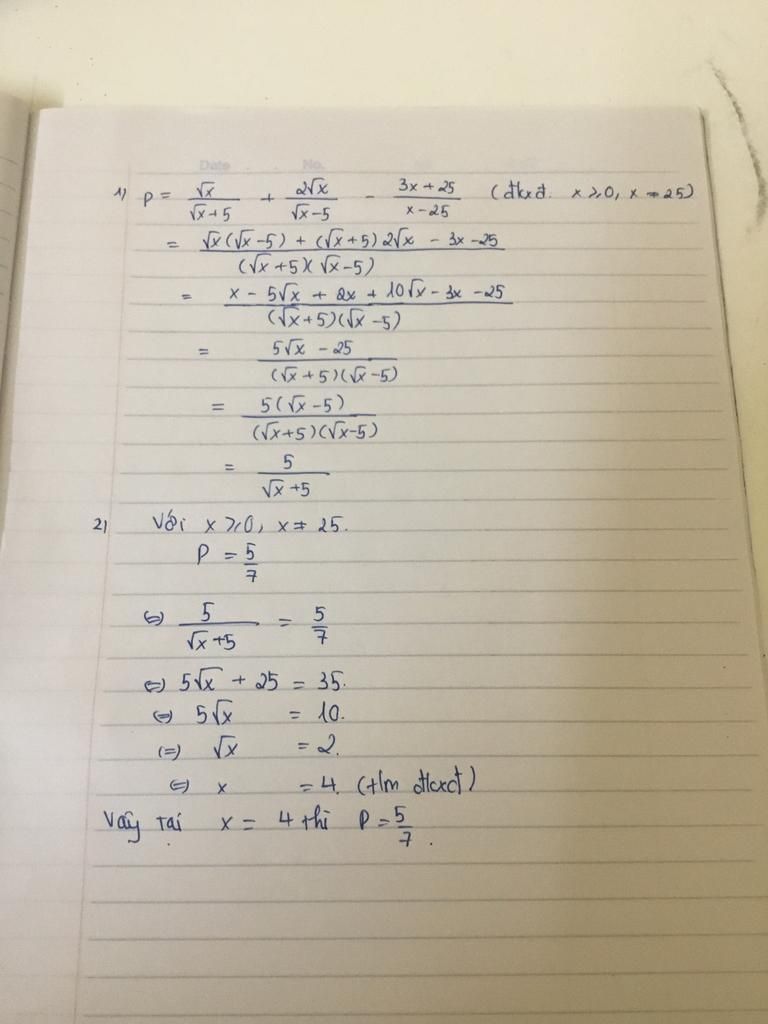 Date No.
1) P = √x/(√x+5) + 2√x/(√x-5) - (3x+25)/(x-25) (đkxđ. x ≥ 0, x ≠ 25)
= (√x(√x-5) + (√x+5)2√x - 3x-25)/((√x+5)(√x-5))
= (x - 5√x + 2x + 10√x - 3x - 25)/((√x+5)(√x-5))
= (5√x - 25)/((√x+5)(√x-5))
= 5(√x-5)/((√x+5)(√x-5))
= 5/(√x+5)
2) Với x ≥ 0, x ≠ 25.
P = 5/7
⇔ 5/(√x+5) = 5/7
⇔ 5√x + 25 = 35.
⇔ 5√x = 10.
⇔ √x = 2.
⇔ x = 4. (tm đkxđ)
Vậy tại x = 4 thì P = 5/7.